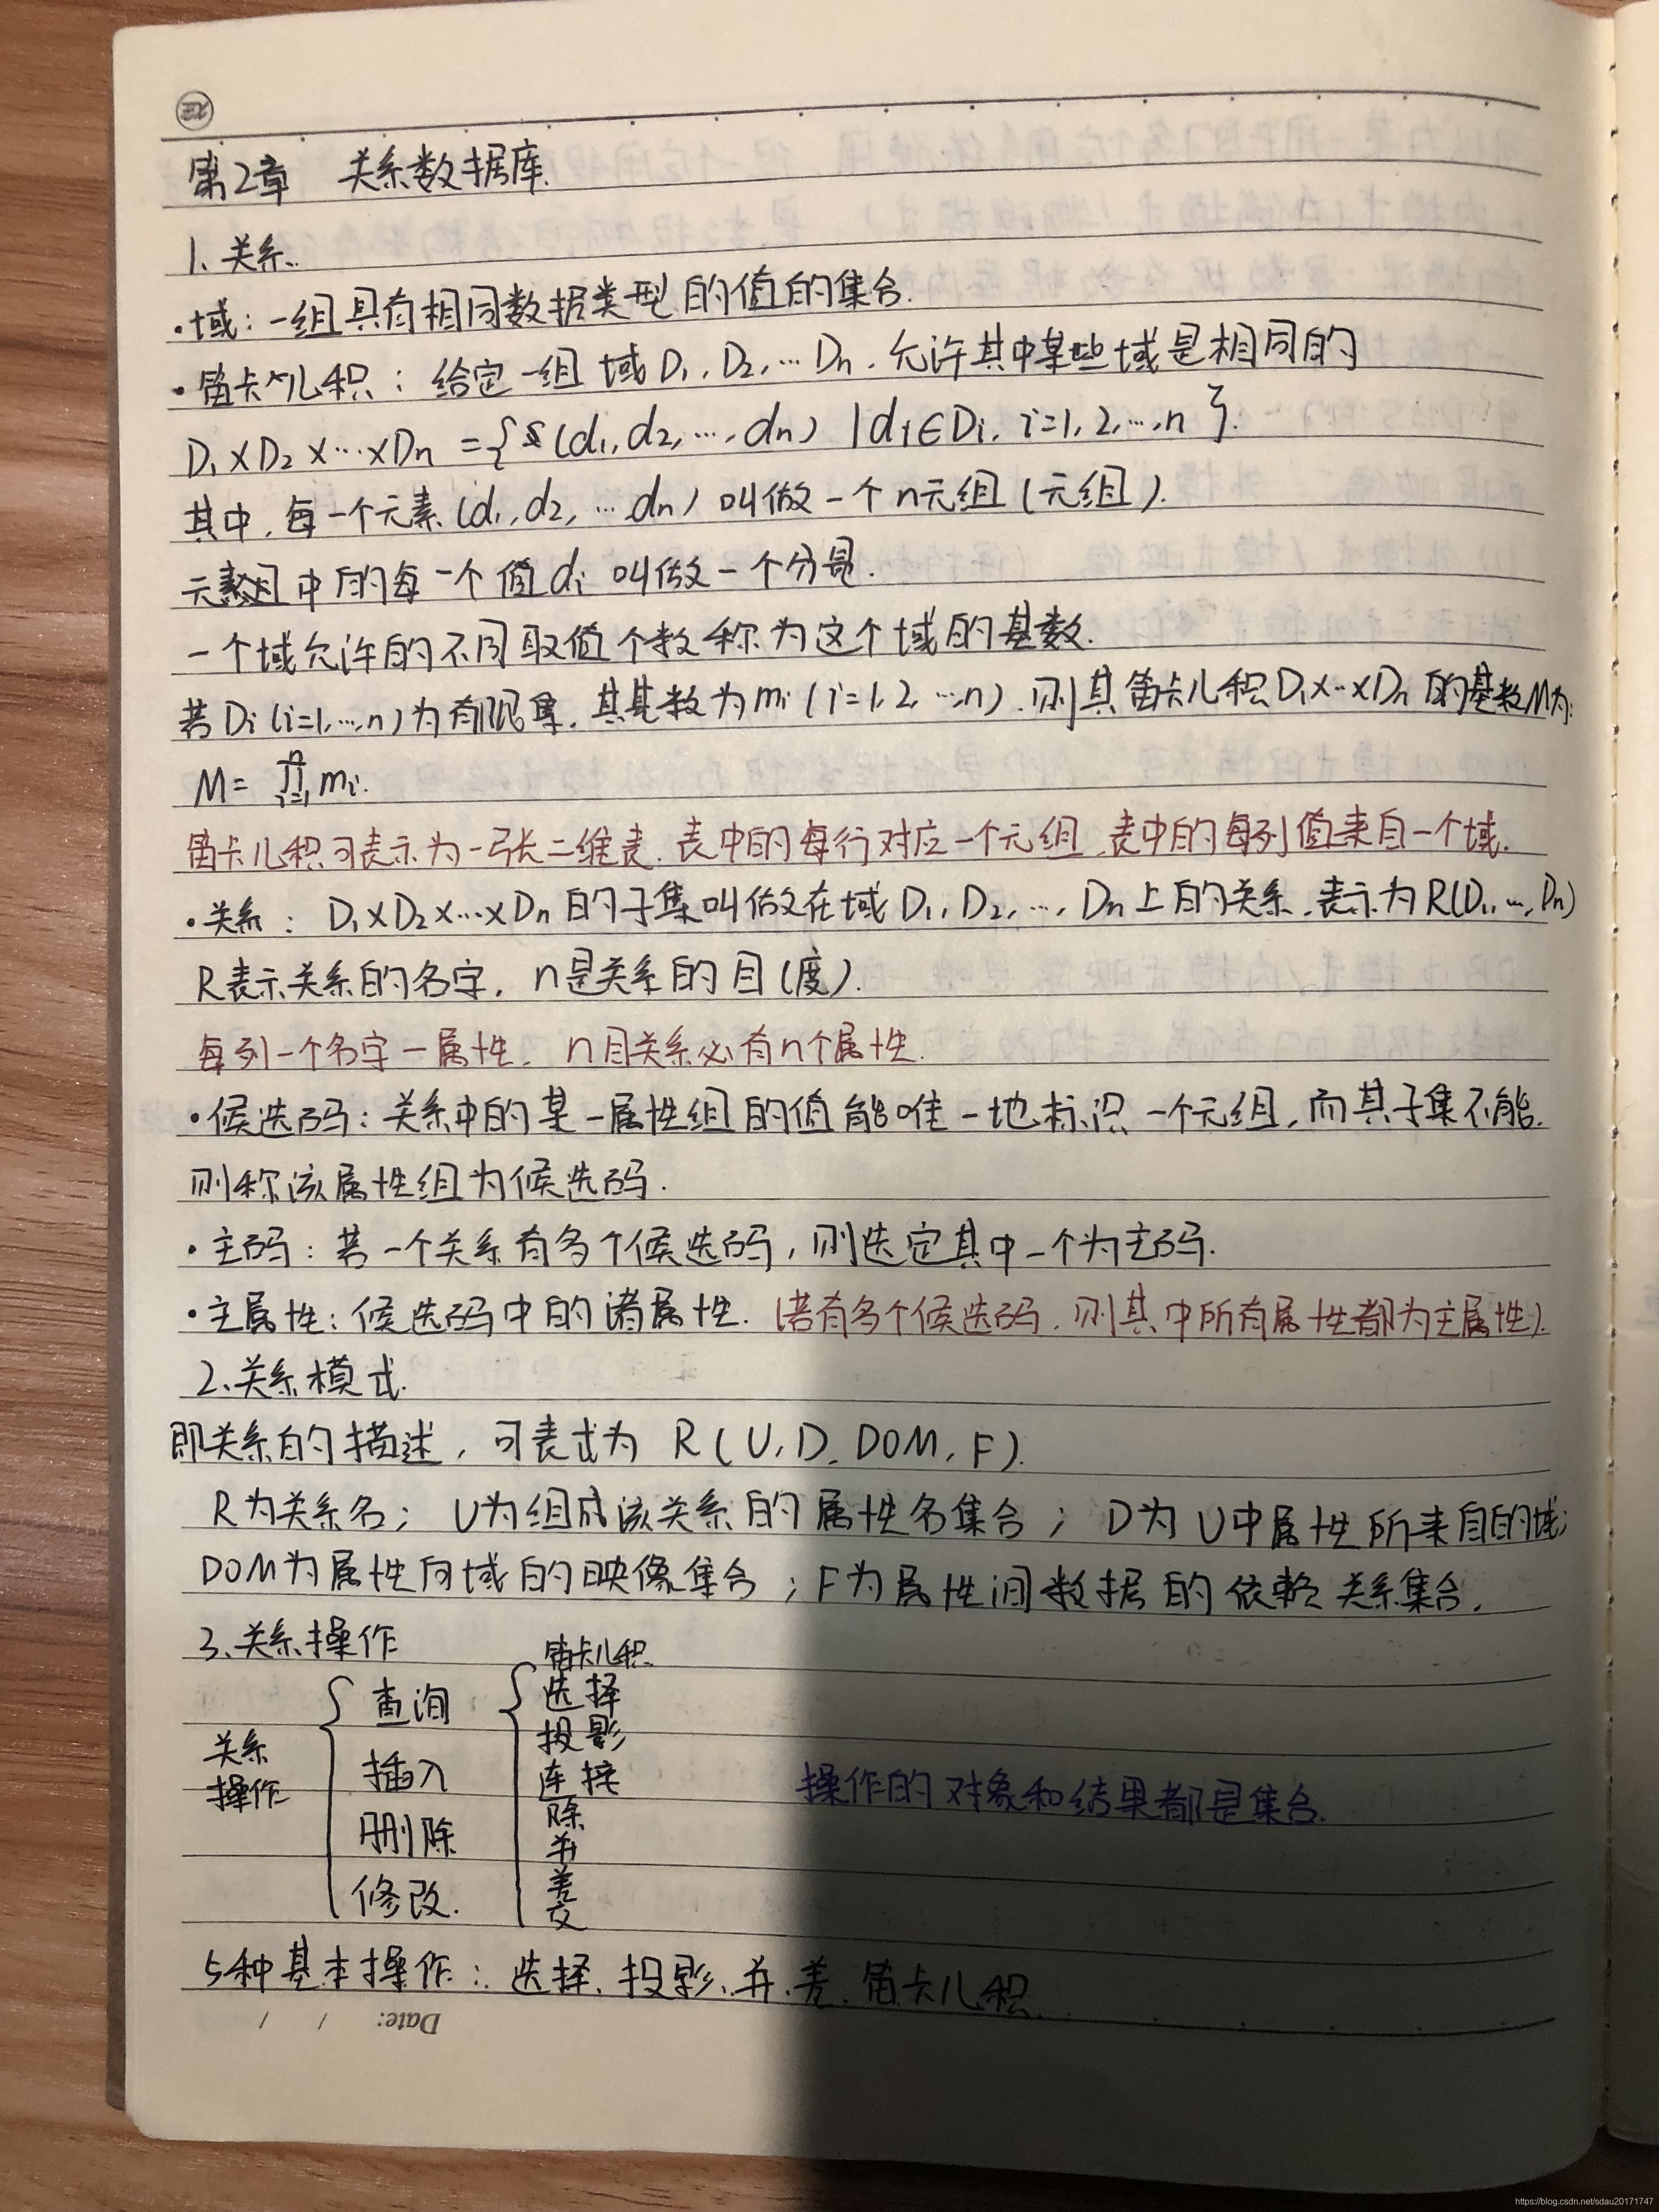 第2章 关系数据库.
1、关系.
·域: 一组具有相同数据类型的值的集合.
·笛卡儿积: 给定一组域D₁, D₂, … Dₙ. 允许其中某些域是相同的
D₁×D₂×…×Dₙ = {(d₁, d₂, …, dₙ) | dᵢ∈Dᵢ, i=1, 2, …, n}.
其中, 每一个元素(d₁, d₂, … dₙ)叫做一个n元组(元组).
元组中的每一个值dᵢ叫做一个分量.
一个域允许的不同取值个数称为这个域的基数.
若Dᵢ(i=1,…,n)为有限集, 其基数为mᵢ(i=1, 2, …, n). 则其笛卡儿积D₁×…×Dₙ的基数M为:
M = ∏ᵢ₌₁ⁿ mᵢ.
笛卡儿积可表示为一张二维表. 表中的每行对应一个元组, 表中的每列值来自一个域.
·关系: D₁×D₂×…×Dₙ的子集叫做在域D₁, D₂, …, Dₙ上的关系. 表示为R(D₁, …, Dₙ)
R表示关系的名字, n是关系的目(度).
每列一个名字—属性. n目关系必有n个属性.
·候选码: 关系中的某一属性组的值能唯一地标识一个元组, 而其子集不能.
则称该属性组为候选码.
·主码: 若一个关系有多个候选码, 则选定其中一个为主码.
·主属性: 候选码中的诸属性. (若有多个候选码, 则其中所有属性都为主属性).
2、关系模式.
即关系的描述, 可表式为 R(U, D, DOM, F).
R为关系名; U为组成该关系的属性名集合; D为U中属性所来自的域;
DOM为属性向域的映像集合; F为属性间数据的依赖关系集合.
3、关系操作
关系
操作
查询
插入
删除
修改.
笛卡儿积
选择
投影
连接
除
并
差
交
操作的对象和结果都是集合.
5种基本操作: 选择、投影、并、差、笛卡儿积
Date: / /
https://blog.csdn.net/sdau20171747